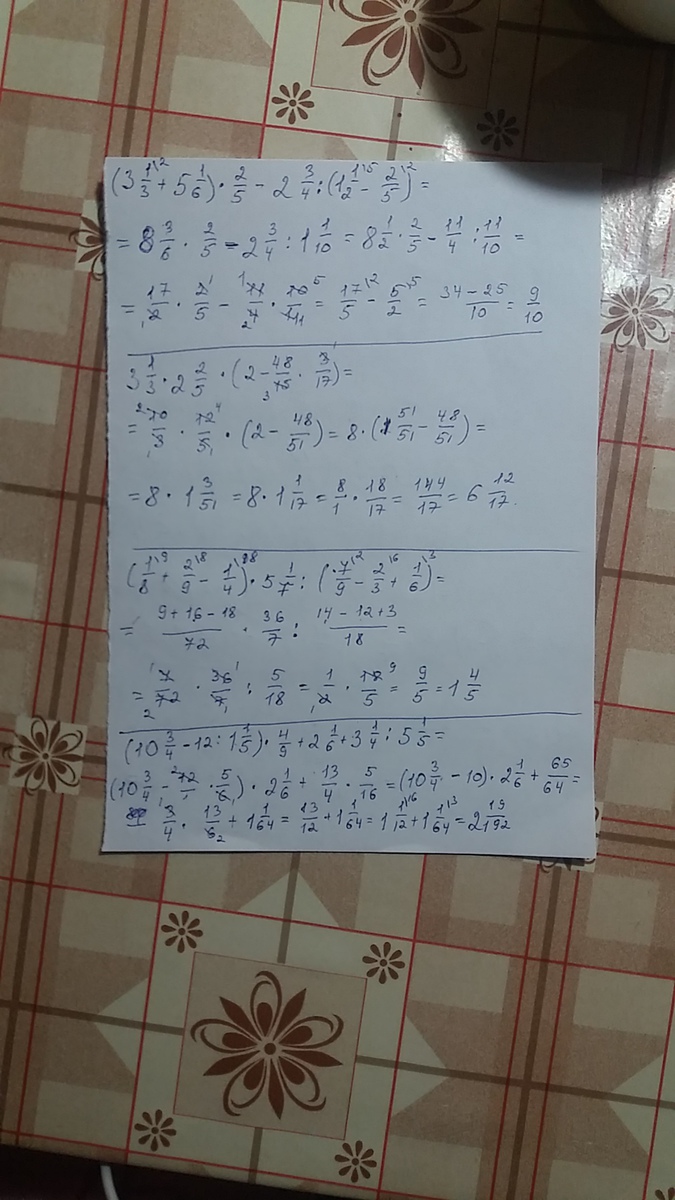 (3 1/3\2 + 5 1/6) · 2/5 - 2 3/4 : (1 1/2\5 - 2/5\2) =
= 8 3/6 · 2/5 - 2 3/4 : 1 1/10 = 8 1/2 · 2/5 - 11/4 : 11/10 =
= 17/2 · 2/5 - 11/4 · 10/11 = 17/5\2 - 5/2\5 = 34-25/10 = 9/10
3 1/3 · 2 2/5 · (2 - 48/15 · 3/17) =
= 10/3 · 12/5 · (2 - 48/51) = 8 · (1 51/51 - 48/51) =
= 8 · 1 3/51 = 8 · 1 1/17 = 8/1 · 18/17 = 144/17 = 6 12/17.
(1/8\9 + 2/9\8 - 1/4\18) · 5 1/7 : (7/9\2 - 2/3\6 + 1/6\3) =
= 9+16-18/72 · 36/7 : 14-12+3/18 =
= 7/72 · 36/7 : 5/18 = 1/2 · 18/5 = 9/5 = 1 4/5
(10 3/4 - 12 : 1 1/5) · 4/9 + 2 1/6 + 3 1/4 : 5 1/5 =
(10 3/4 - 12/1 · 5/6) · 2 1/6 + 13/4 · 5/16 = (10 3/4 - 10) · 2 1/6 + 65/64 =
3/4 · 13/6 + 1 1/64 = 13/12 + 1 1/64 = 1 1/12\16 + 1 1/64\3 = 2 19/192